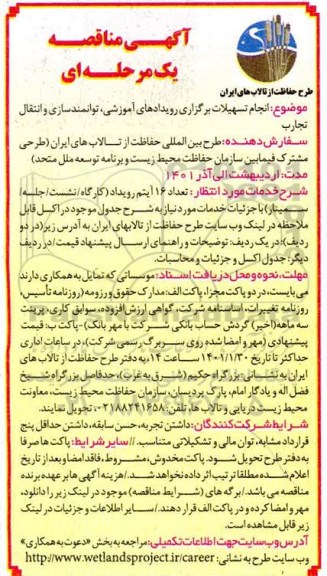 آگهی مناقصه
یک مرحله‌ای
طرح حفاظت از تالاب های ایران
موضوع: انجام تسهیلات برگزاری رویدادهای آموزشی، توانمندسازی و انتقال
تجارب
سفارش دهنده: طرح بین المللی حفاظت از تالاب های ایران (طرحی
مشترک فیمابین سازمان حفاظت محیط زیست و برنامه توسعه ملل متحد)
مدت: اردیبهشت الی آذر ۱۴۰۱
شرح خدمات مورد انتظار: تعداد ۱۶ آیتم رویداد (کارگاه/نشست/جلسه/
سمینار) با جزئیات خدمات مورد نیاز به شرح جدول موجود در اکسل قابل
ملاحظه در لینک وب سایت طرح حفاظت از تالابهای ایران به آدرس زیر (در دو
ردیف): در یک ردیف: توضیحات و راهنمای ارسال پیشنهاد قیمت/در ردیف
دیگر: جدول اکسل و جزئیات و محاسبات.
مهلت، نحوه و محل دریافت اسناد: موسساتی که تمایل به همکاری دارند
می بایست، در دو پاکت مجزا، پاکت الف: مدارک حقوقی و رزومه (روزنامه تأسیس،
روزنامه تغییرات، اساسنامه شرکت، گواهی ارزش افزوده، سوابق کاری، پرینت
سه ماهه (اخیر) گردش حساب بانکی شرکت با مهر بانک)-پاکت ب: قیمت
پیشنهادی (مهر و امضا شده روی سربرگ رسمی شرکت)، در ساعات اداری
حداکثر تا تاریخ ۱۴۰۱/۱/۳۰ ساعت ۱۴، به دفتر طرح حفاظت از تالاب های
ایران به نشانی: بزرگراه حکیم (شرق به غرب)، حدفاصل بزرگراه شیخ
فضل اله و یادگار امام، پارک پردیسان، سازمان حفاظت محیط زیست، معاونت
محیط زیست دریایی و تالاب ها، تلفن: ۰۲۱۸۸۲۴۱۶۵۸ تحویل نمایند.
شرایط شرکت کنندگان: داشتن تجربه، حسن سابقه، داشتن حداقل پنج
قرارداد مشابه، توان مالی و تشکیلاتی متناسب. //سایر شرایط: پاکت ها صرفا
به دفتر طرح تحویل شود. پاکت مخدوش، مشروط، فاقد امضا و بعد از تاریخ
اعلام شده مطلقا ترتیب اثر داده نخواهد شد./هزینه آگهی ها بر عهده برنده
مناقصه می باشد./برگه های (شرایط مناقصه) موجود در لینک زیر را دانلود،
مهر و امضا کرده و در پاکت الف قرار دهند./سایر اطلاعات و جزئیات در لینک
زیر قابل مشاهده است.
آدرس وب سایت جهت اطلاعات تکمیلی: مراجعه به بخش «دعوت به همکاری»
وب سایت طرح به نشانی: http://www.wetlandsproject.ir/career